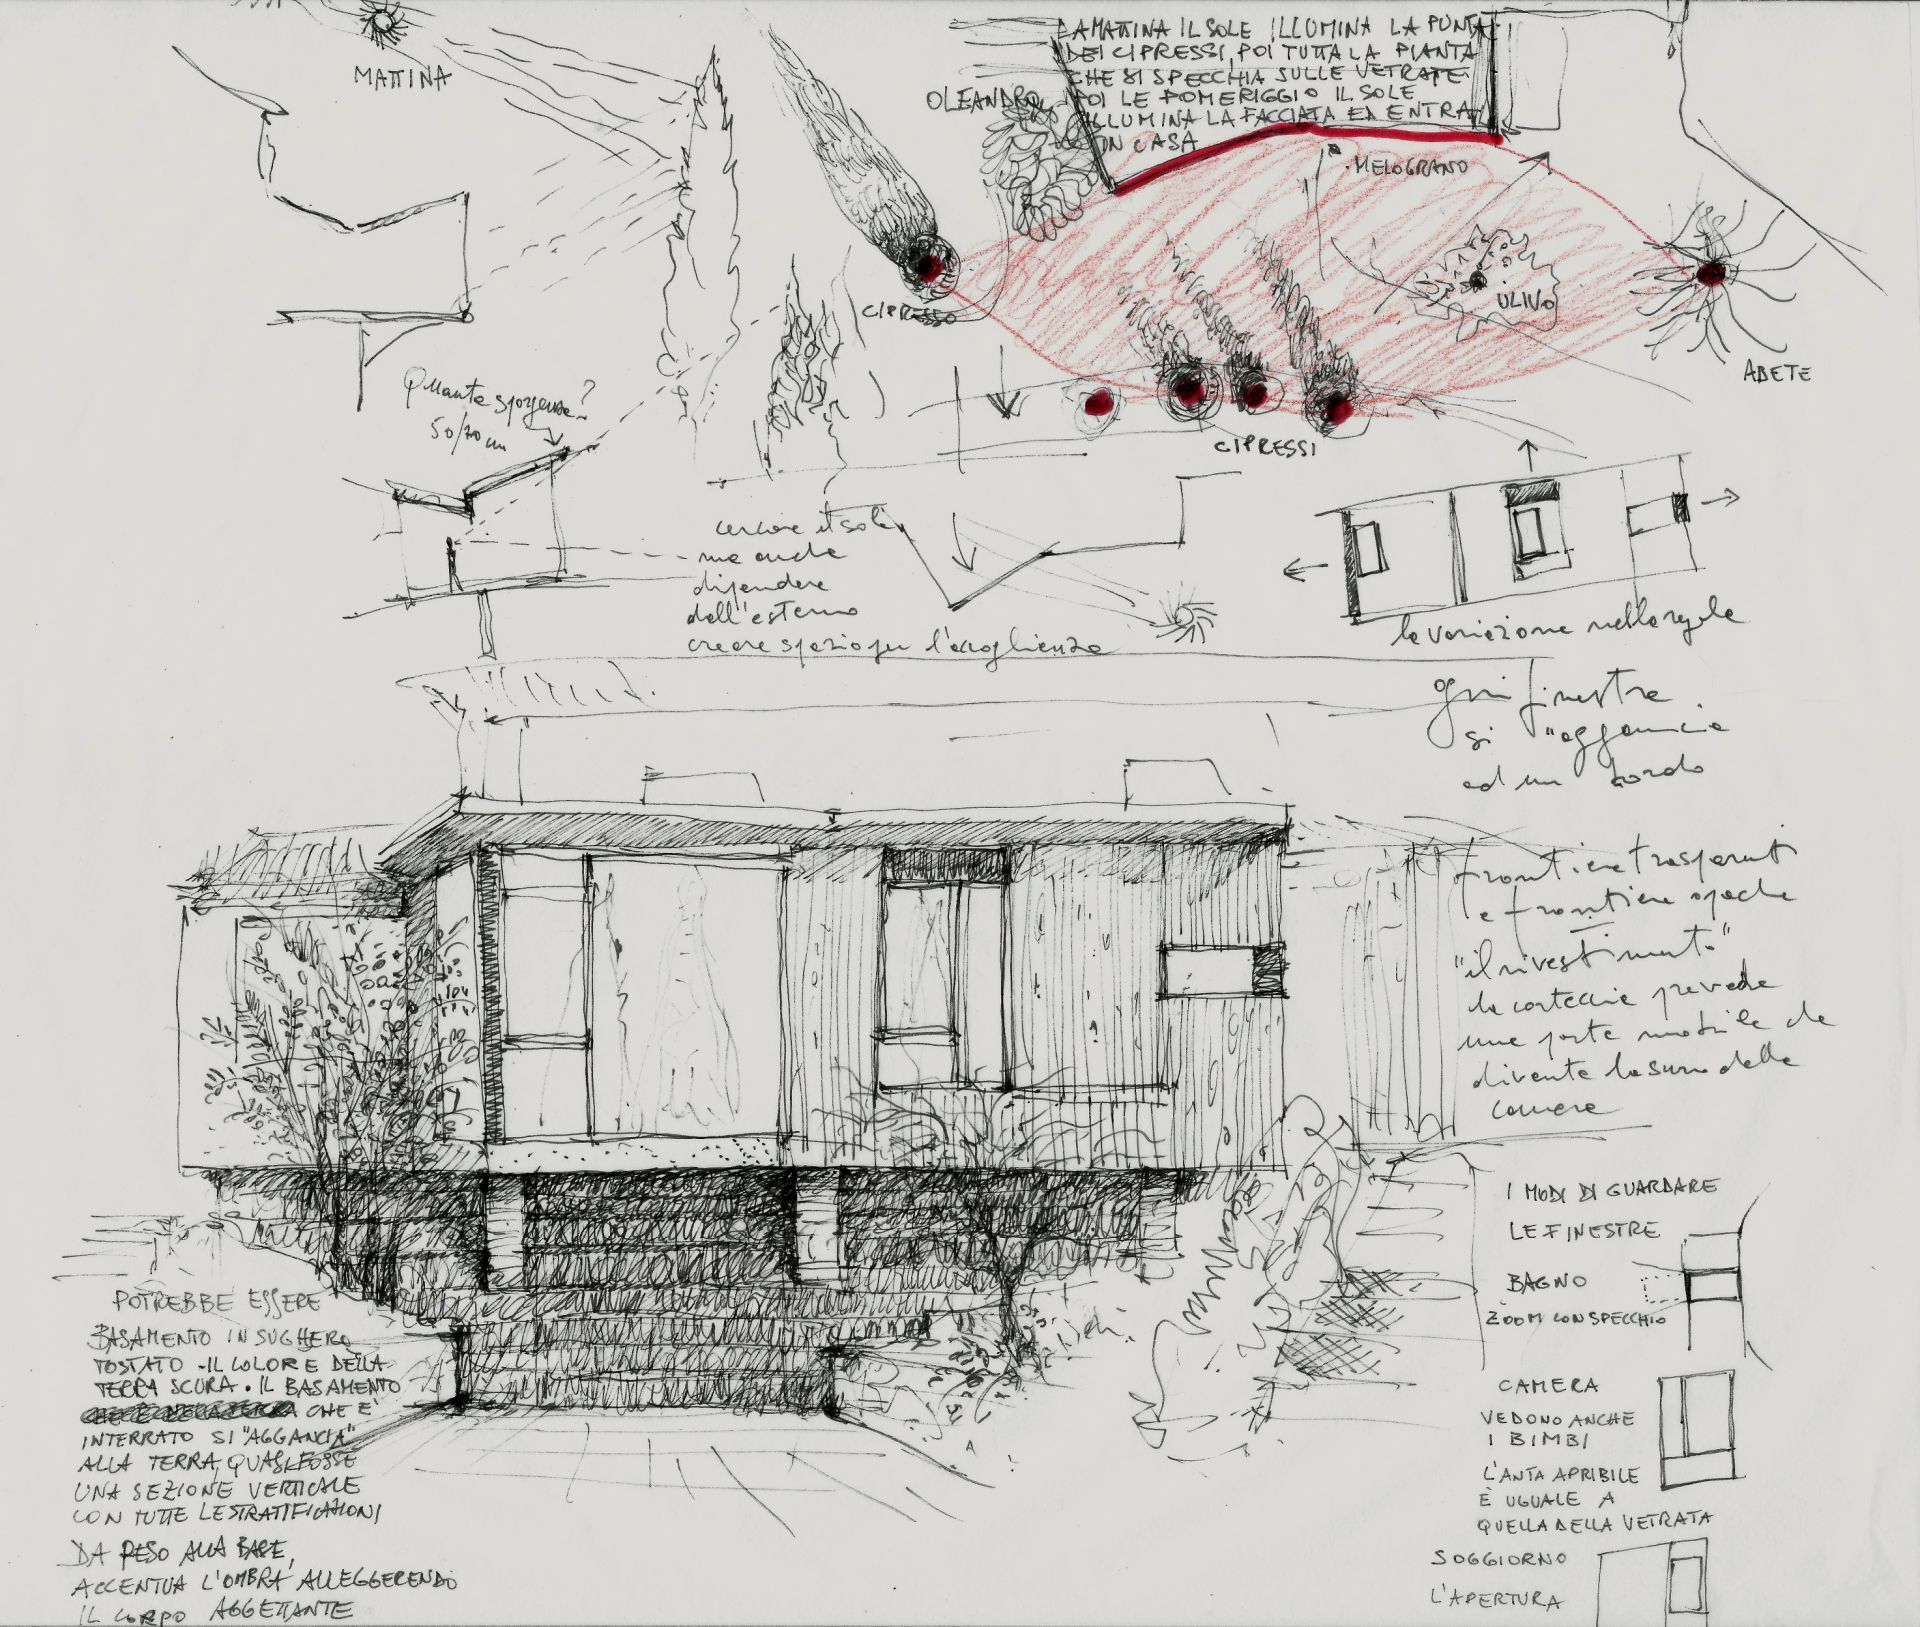 MATTINA
LA MATTINA IL SOLE ILLUMINA LA PUNTA
DEI CIPRESSI, POI TUTTA LA PIANTA
CHE SI SPECCHIA SULLE VETRATE.
POI LE POMERIGGIO IL SOLE
ILLUMINA LA FACCIATA ED ENTRA
IN CASA
OLEANDRO
MELOGRANO
CIPRESSO
ULIVO
ABETE
CIPRESSI
Quanto sporgenza?
50/70 cm
cercare il sole
ma anche
difendere
dall'esterno
creare spazio per l'accoglienza
la variazione nella regola
ogni finestra
si "aggancia
ad un bordo
frontiere trasparenti
e frontiere opache
"il rivestimento"
la corteccia prevede
una parte mobile che
diventa la scuro delle
camere
I MODI DI GUARDARE
LE FINESTRE
BAGNO
ZOOM CON SPECCHIO
CAMERA
VEDONO ANCHE
I BIMBI
L'ANTA APRIBILE
È UGUALE A
QUELLA DELLA VETRATA
SOGGIORNO
L'APERTURA
POTREBBE ESSERE
BASAMENTO IN SUGHERO
TOSTATO - IL COLORE DELLA
TERRA SCURA. IL BASAMENTO
CHE È
INTERRATO SI "AGGANCIA"
ALLA TERRA, QUASI FOSSE
UNA SEZIONE VERTICALE
CON TUTTE LE STRATIFICAZIONI
DA PESO ALLA BASE,
ACCENTUA L'OMBRA ALLEGGERENDO
IL CORPO AGGETTANTE